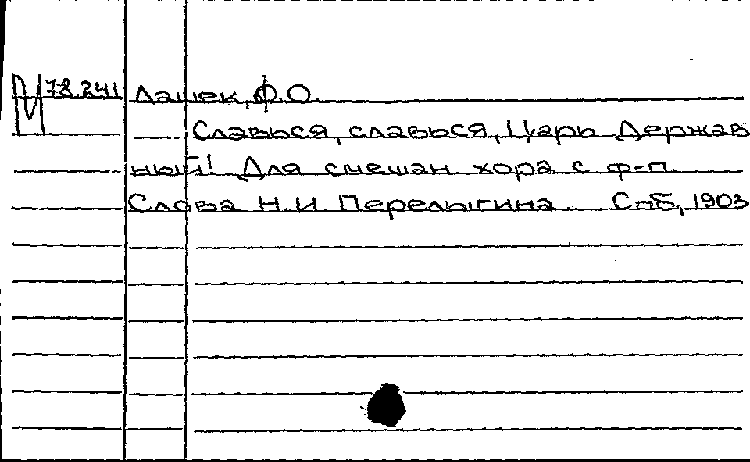 М 78.241 Лашек, Ф.О.
Славься, славься, Царь Держав
ный! Для смешан хора с ф-п.
Слова Н.И Перелыгина. Спб, 1903